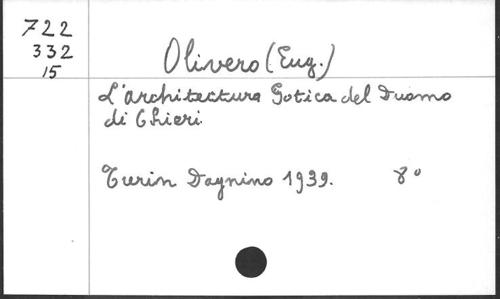 722
332
15
Olivero (Eug.)
L'architectura Gotica del Duomo
di Chieri
Turin Dagnino 1939. 8°